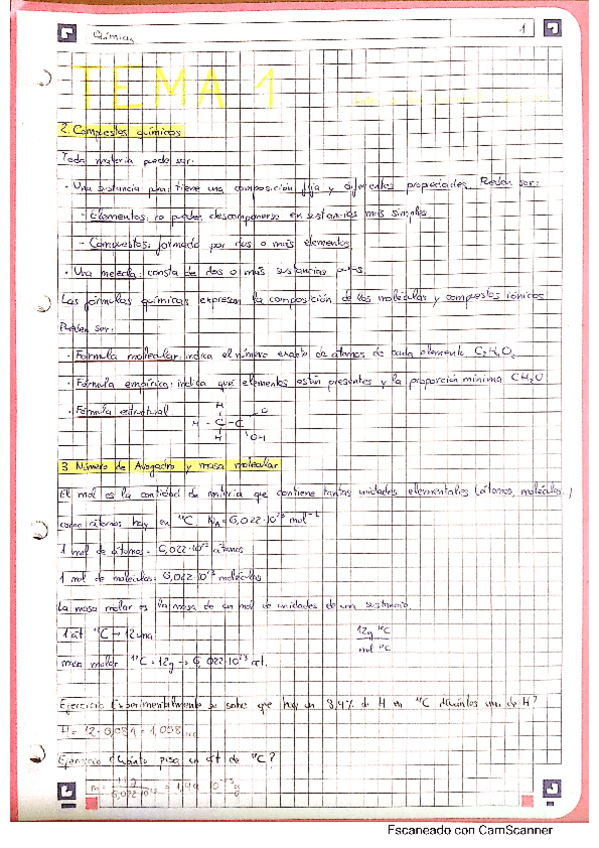 Química
1
TEMA 1
2. Compuestos químicos
Toda materia puede ser:
· Una sustancia pura: tiene una composición fija y diferentes propiedades. Pueden ser:
- Elementos: no pueden descomponerse en sustancias más simples
- Compuestos: formado por dos o más elementos
· Una mezcla: consta de dos o más sustancias puras.
Las fórmulas químicas expresan la composición de las moléculas y compuestos iónicos
Pueden ser:
· Fórmula molecular: indica el número exacto de átomos de cada elemento C₂H₄O₂
· Fórmula empírica: indica qué elementos están presentes y la proporción mínima CH₂O
· Fórmula estructural
H
H - C - C
O
H
OH
3 Número de Avogadro y masa molecular
El mol es la cantidad de materia que contiene tantas unidades elementales (átomos, moléculas..)
como átomos hay en ¹²C. NA = 6,022·10²³ mol⁻¹
1 mol de átomos = 6,022·10²³ átomos
1 mol de moléculas: 6,022·10²³ moléculas
La masa molar es la masa de un mol de unidades de una sustancia.
1 at ¹²C → 12 uma
12g ¹²C
mol ¹²C
masa molar ¹²C = 12g → 6,022·10²³ at.
Ejercicio Experimentalmente se sabe que hay un 8,4% de H en ¹²C ¿Cuántos uma de H?
H = 12 · 0,084 = 1,008
Ejercicio ¿Cuánto pesa un at de ¹²C?
m =
Escaneado con CamScanner